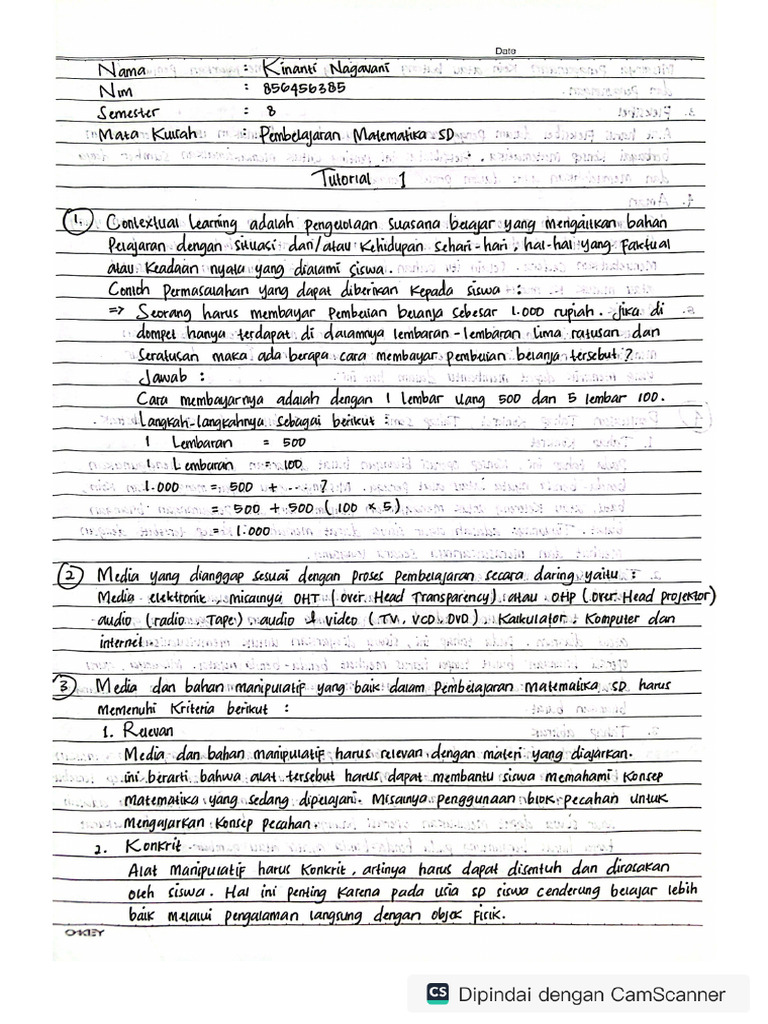 Date
Nama : Kinanti Nagavani
Nim : 856456385
Semester : 8
Mata Kuliah : Pembelajaran Matematika SD
Tutorial 1
1. Contextual Learning adalah pengelolaan suasana belajar yang mengaitkan bahan
Pelajaran dengan situasi dan/atau Kehidupan sehari-hari, hal-hal yang Faktual
atau Keadaan nyata yang dialami siswa.
Contoh Permasalahan yang dapat diberikan Kepada siswa :
=> Seorang harus membayar Pembelian belanja sebesar 1.000 rupiah. Jika di
dompet hanya terdapat di dalamnya lembaran-lembaran lima ratusan dan
Seratusan maka ada berapa cara membayar pembelian belanja tersebut?
Jawab :
Cara membayarnya adalah dengan 1 Lembar Uang 500 dan 5 lembar 100.
Langkah-langkahnya sebagai berikut :
1 Lembaran = 500
1 Lembaran = 100
1.000 = 500 + ....?
= 500 + 500 (100 x 5)
= 1.000
2 Media yang dianggap sesuai dengan proses Pembelajaran secara daring yaitu :
Media elektronik, misalnya OHT (Over Head Transparency) atau OHP (Over Head projektor)
audio (radio, Tape) audio & video (TV, VCD, DVD), Kalkulator, Komputer dan
internet
3 Media dan bahan manipulatif yang baik dalam Pembelajaran Matematika SD harus
Memenuhi Kriteria berikut :
1. Relevan
Media dan bahan manipulatif harus relevan dengan materi yang diajarkan.
ini berarti bahwa alat tersebut harus dapat membantu siswa memahami Konsep
Matematika yang sedang dipelajari. Misalnya penggunaan blok pecahan untuk
Mengajarkan Konsep pecahan.
2. Konkrit
Alat Manipulatif harus Konkrit, artinya harus dapat disentuh dan dirasakan
oleh siswa. Hal ini penting Karena pada usia SD siswa cenderung belajar lebih
baik melalui pengalaman langsung dengan objek Fisik.
OKEY
CS Dipindai dengan CamScanner